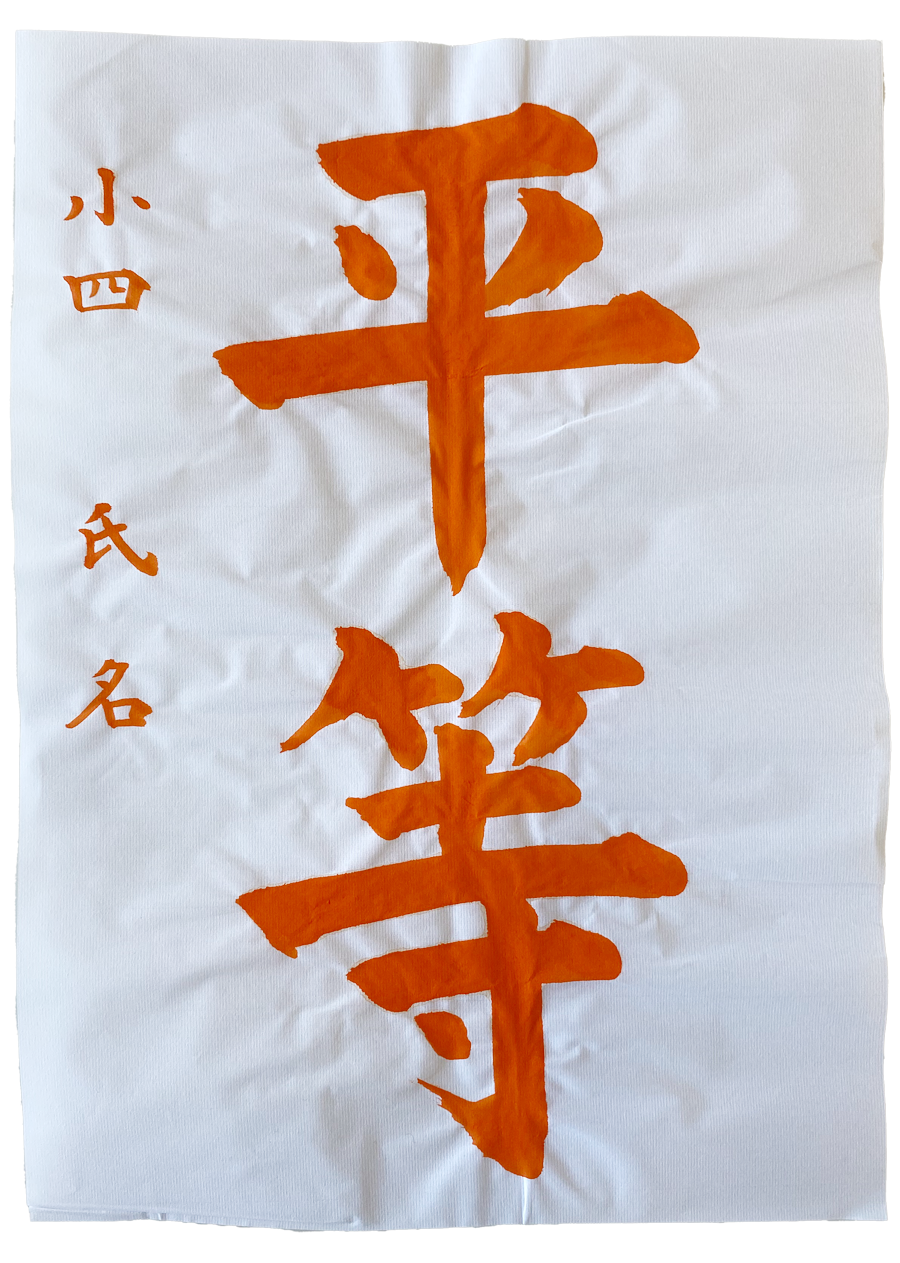 平等
小四 氏名